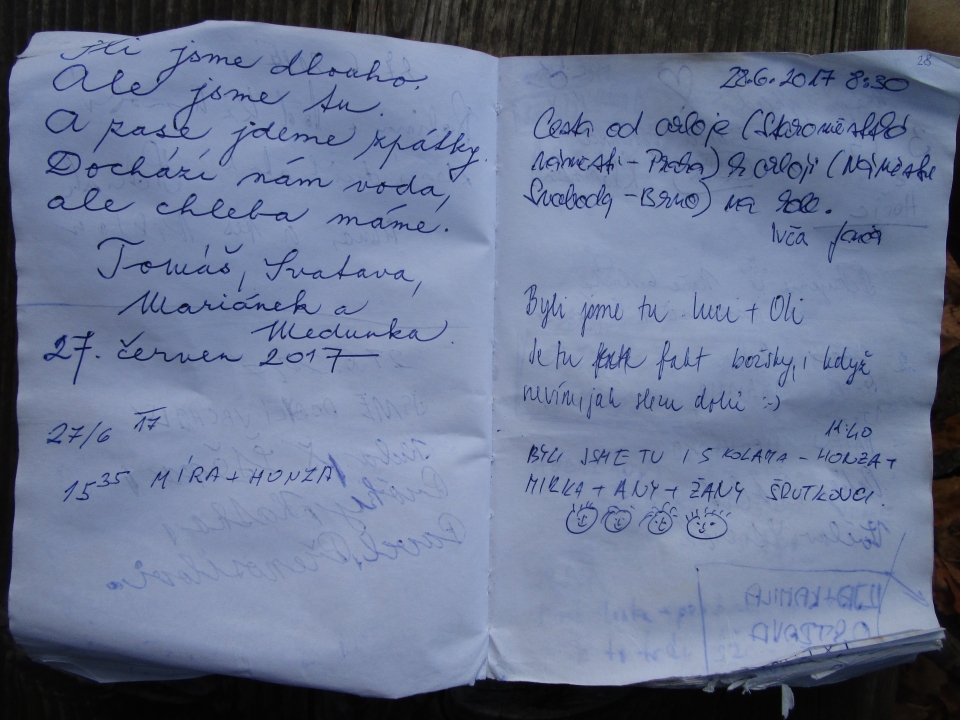 Šli jsme dlouho.
Ale jsme tu.
A zase jdeme zpátky.
Dochází nám voda,
ale chleba máme.
Tomáš, Svatava,
Mariánek a
Medunka.
27. červen 2017
27/6 17
15 35 MÍRA + HONZA
28
28.6.2017 8:30
Cesta od orloje (Staroměstské
náměstí - Praha) k orloji (Náměstí
Svobody - Brno) na kole.
Ivča
Byli jsme tu Luci + Oli
Je tu fakt božsky, i když
nevím, jak slezu dolů :-)
11:40
BYLI JSME TU I S KOLAMA - HONZA +
MIRKA + ANY + ŽANY